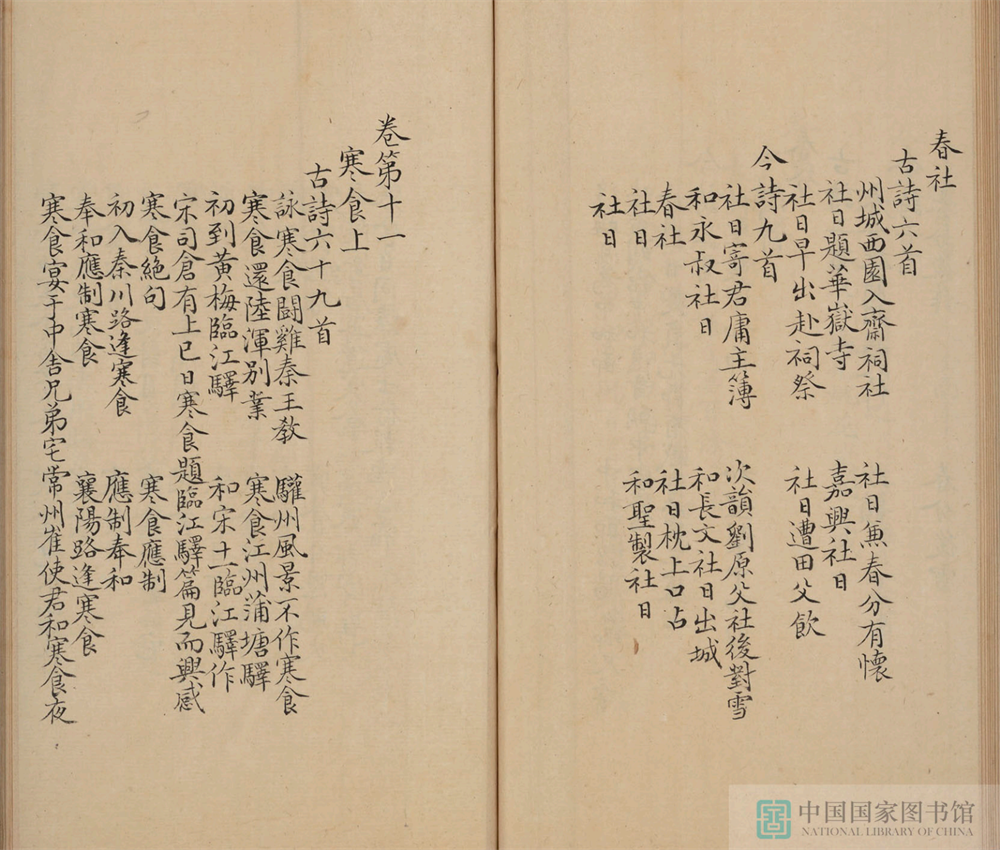 春社
古詩六首
州城西園入齋祠社　社日兼春分有懷
社日題華嶽寺　嘉興社日
社日早出赴祠祭　社日遭田父飲
今詩九首
社日寄君庸主簿　次韻劉原父社後對雪
和永叔社日　和長文社日出城
春社　社日枕上口占
社日　和聖製社日
社日
卷第十一
寒食上
古詩六十九首
詠寒食鬬雞秦王教　驩州風景不作寒食
寒食還陸渾別業　寒食江州蒲塘驛
初到黃梅臨江驛　和宋十一臨江驛作
宋司倉有上巳日寒食題臨江驛篇見而興感
寒食絕句　寒食應制
初入秦川路逢寒食　應制奉和
奉和應制寒食　襄陽路逢寒食
寒食宴于中舍兄弟宅常州崔使君和寒食夜
中国国家图书馆
NATIONAL LIBRARY OF CHINA